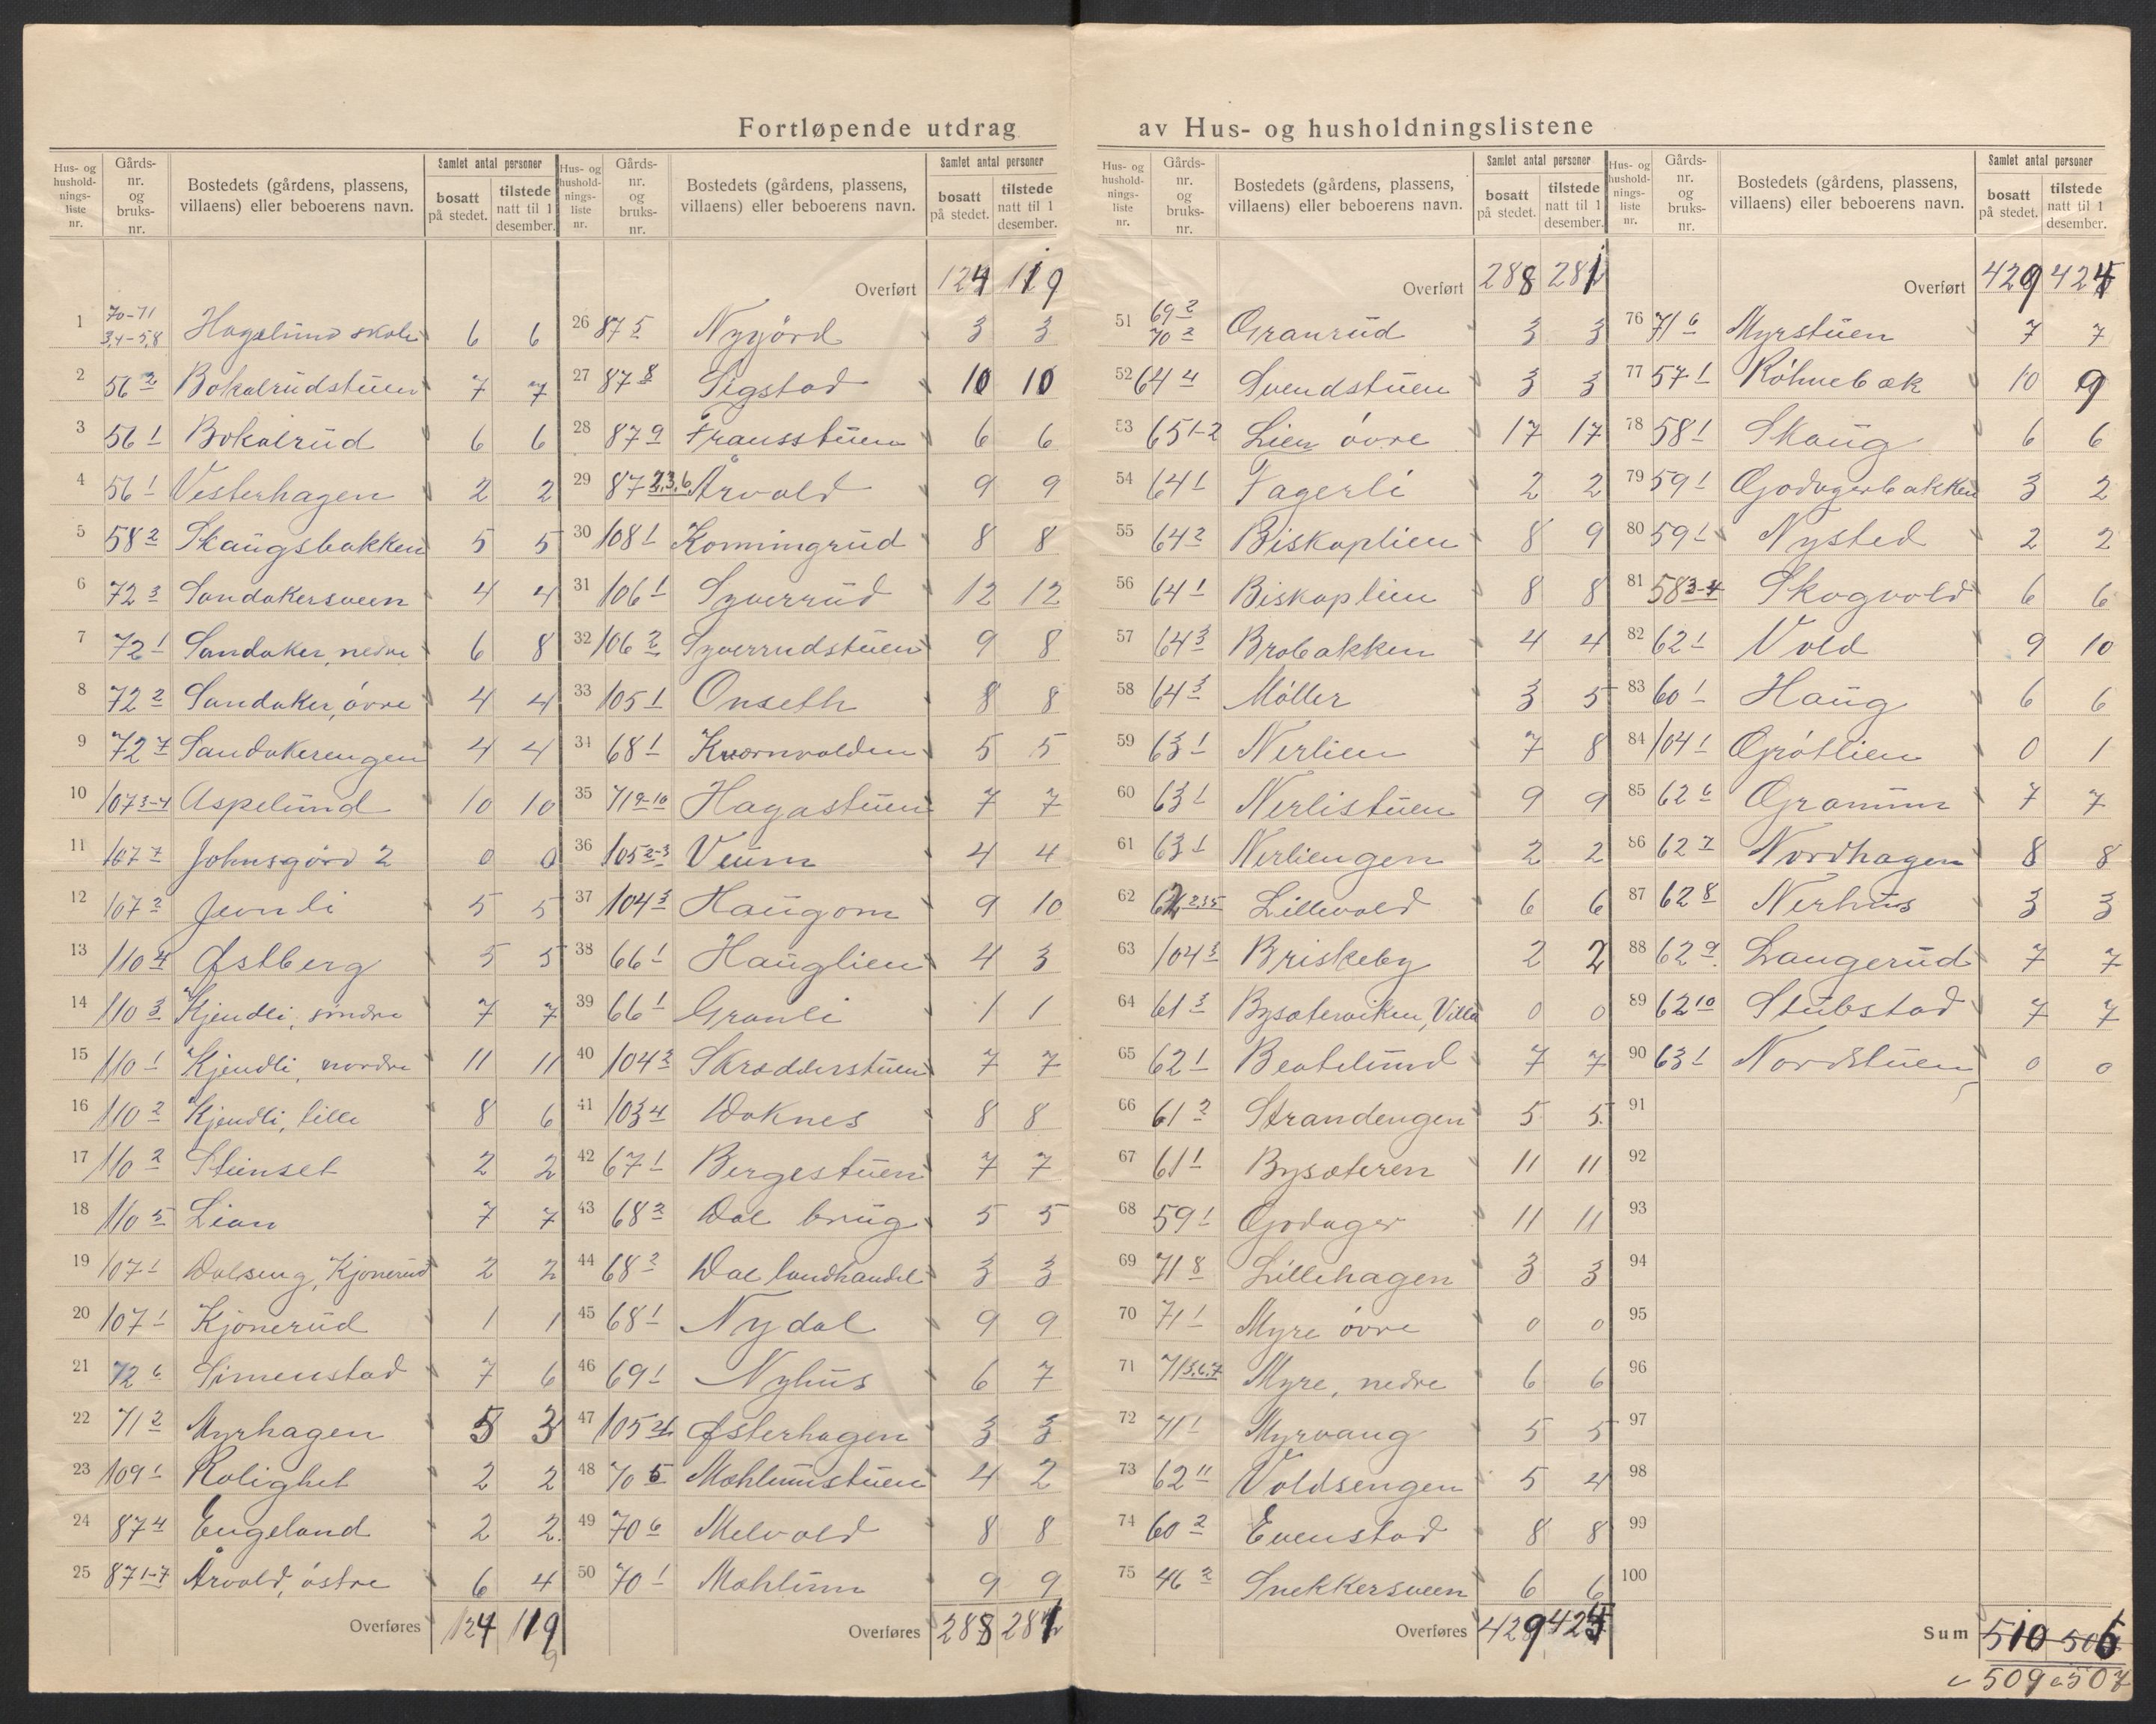 Fortløpende utdrag av Hus- og husholdningslistene
Hus- og hushold- nings- liste nr. | Gårds- nr. og bruks- nr. | Bostedets (gårdens, plassens, villaens) eller beboerens navn. | Samlet antal personer | bosatt på stedet. | tilstede natt til 1 desember.
1 70-71 3,4-5,8 Hagelund skole 6 6
2 56 2 Bokalrudstuen 7 7
3 56 1 Bokalrud 6 6
4 56 1 Vesterhagen 2 2
5 58 2 Skaugsbakken 5 5
6 72 3 Sandakersveen 4 4
7 72 1 Sandaker, nedre 6 8
8 72 2 Sandaker, övre 4 4
9 72 7 Sandakerengen 4 4
10 107 3-4 Aspelund 10 10
11 107 7 Johnsgård 2 0 0
12 107 2 Jevnli 5 5
13 110 4 Østberg 5 5
14 110 3 Kjendli, söndre 7 7
15 110 1 Kjendli, nordre 11 11
16 110 2 Kjendli, lille 8 6
17 110 2 Stenset 2 2
18 110 5 Lian 7 7
19 107 1 Dalseng, Kjönerud 2 2
20 107 1 Kjönerud 1 1
21 72 6 Simenstad 7 6
22 71 2 Myrhagen 5 3
23 109 1 Rolighet 2 2
24 87 4 Engeland 2 2
25 87 1-7 Årvold, östre 6 4
Overføres 124 119
Hus- og hushold- nings- liste nr. | Gårds- nr. og bruks- nr. | Bostedets (gårdens, plassens, villaens) eller beboerens navn. | Samlet antal personer | bosatt på stedet. | tilstede natt til 1 desember.
Overført 124 119
26 87 5 Nygård 3 3
27 87 8 Sigstad 10 10
28 87 9 Fransstuen 6 6
29 87 2,3,6 Årvold 9 9
30 108 1 Konningrud 8 8
31 106 1 Syverrud 12 12
32 106 2 Syverrudstuen 9 8
33 105 1 Onseth 8 8
34 68 1 Kvernvolden 5 5
35 71 9-10 Hagastuen 7 7
36 105 2-3 Veum 4 4
37 104 3 Haugom 9 10
38 66 1 Hauglien 4 3
39 66 1 Granli 1 1
40 104 2 Skrædderstuen 7 7
41 103 4 Doknes 8 8
42 67 1 Bergestuen 7 7
43 68 2 Dal brug 5 5
44 68 2 Dal landhandel 3 3
45 68 1 Nydal 9 9
46 69 1 Nyhus 6 7
47 105 4 Østerhagen 3 3
48 70 5 Mæhlumstuen 4 2
49 70 6 Melvold 8 8
50 70 1 Mæhlum 9 9
Overføres 288 281
Hus- og hushold- nings- liste nr. | Gårds- nr. og bruks- nr. | Bostedets (gårdens, plassens, villaens) eller beboerens navn. | Samlet antal personer | bosatt på stedet. | tilstede natt til 1 desember.
Overført 288 281
51 69 2 70 2 Granrud 3 3
52 64 4 Svendstuen 3 3
53 65 1-2 Lien övre 17 17
54 64 1 Fagerli 2 2
55 64 2 Biskoplien 8 9
56 64 1 Biskoplien 8 8
57 64 3 Brobakken 4 4
58 64 3 Möller 3 5
59 63 1 Nerlien 7 8
60 63 1 Nerlistuen 9 9
61 63 1 Nerliengen 2 2
62 62 2,3,5 Lillevold 6 6
63 104 3 Briskeby 2 2
64 61 3 Bysæterviken, Villa 0 0
65 62 1 Beatelund 7 7
66 61 2 Strandengen 5 5
67 61 1 Bysæteren 11 11
68 59 1 Godager 11 11
69 71 8 Lillehagen 3 3
70 71 1 Myre övre 0 0
71 71 3,6,7 Myre, nedre 6 6
72 71 1 Myrvang 5 5
73 62 11 Voldsengen 5 4
74 60 2 Evenstad 8 8
75 46 2 Snekkersveen 6 6
Overføres 429 425
Hus- og hushold- nings- liste nr. | Gårds- nr. og bruks- nr. | Bostedets (gårdens, plassens, villaens) eller beboerens navn. | Samlet antal personer | bosatt på stedet. | tilstede natt til 1 desember.
Overført 429 425
76 71 6 Myrstuen 7 7
77 57 1 Röhnebæk 10 9
78 58 1 Skaug 6 6
79 59 1 Godagerbakken 3 2
80 59 1 Nysted 2 2
81 58 3-4 Skogvold 6 6
82 62 1 Vold 9 10
83 60 1 Haug 6 6
84 104 1 Grötlien 0 1
85 62 6 Granum 7 7
86 62 7 Nordhagen 8 8
87 62 8 Nerhus 3 3
88 62 9 Langerud 7 7
89 62 10 Stubstad 7 7
90 63 1 Nordstuen 0 0
91
92
93
94
95
96
97
98
99
100
Sum 510 506
509 507